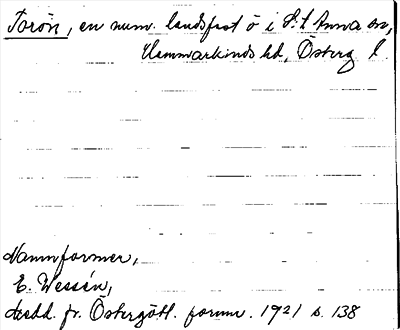 Torön, en num. landsfast ö i S:t Anna sn,
Hammarkinds hd, Östergl.
Namnformer,
E. Wessén,
Medd. fr. Östergötl. fornm. 1921 s. 138